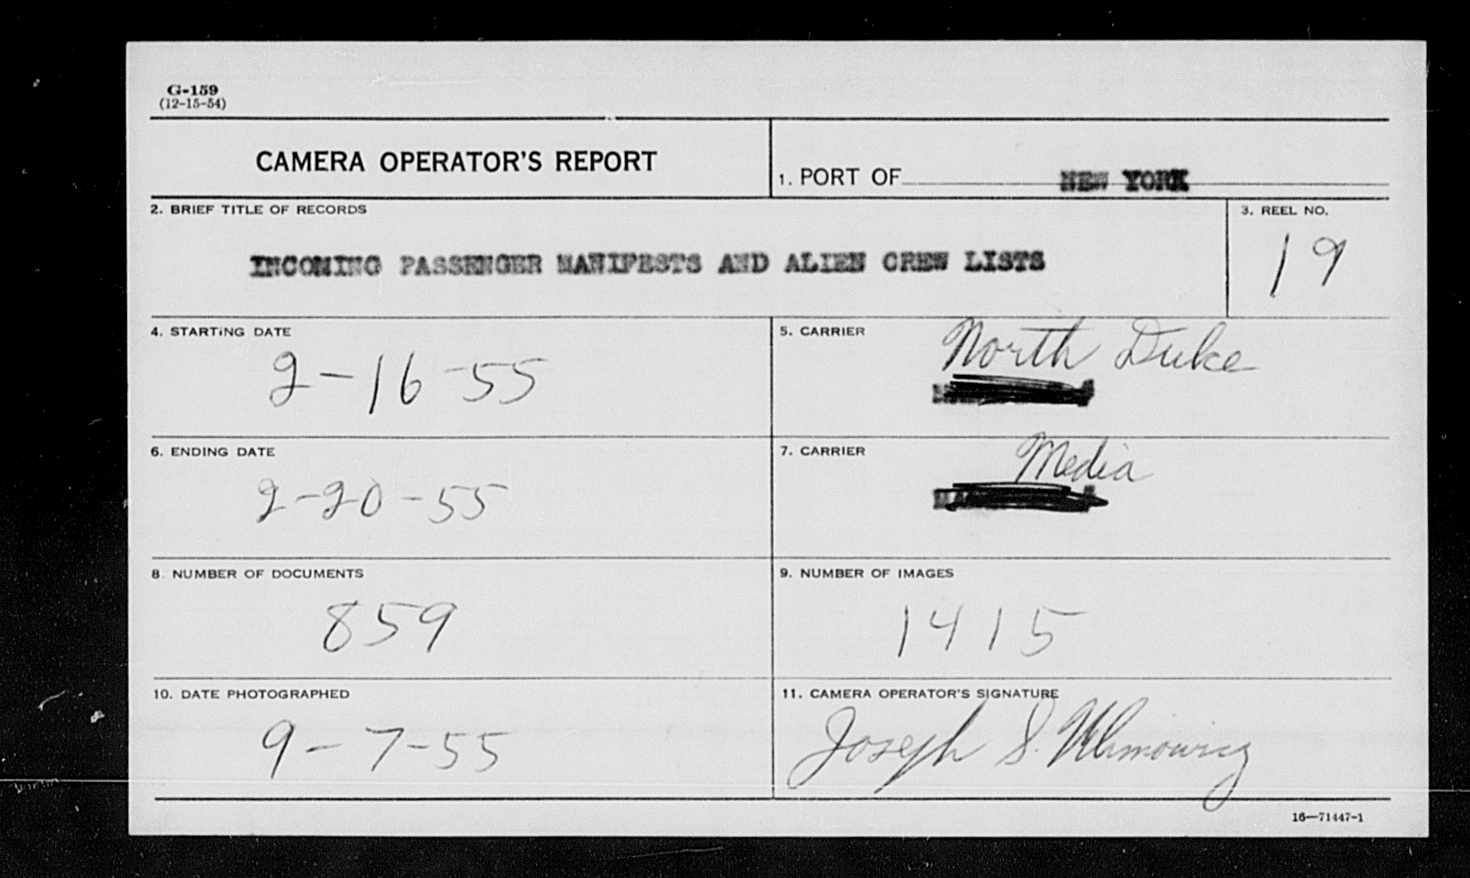 G-159
(12-15-54)
CAMERA OPERATOR'S REPORT
1. PORT OF NEW YORK
2. BRIEF TITLE OF RECORDS
INCOMING PASSENGER MANIFESTS AND ALIEN CREW LISTS
3. REEL NO.
19
4. STARTING DATE
2-16-55
5. CARRIER
North Duke
6. ENDING DATE
2-20-55
7. CARRIER
Media
8. NUMBER OF DOCUMENTS
859
9. NUMBER OF IMAGES
1415
10. DATE PHOTOGRAPHED
9-7-55
11. CAMERA OPERATOR'S SIGNATURE
Joseph S.
16—71447-1